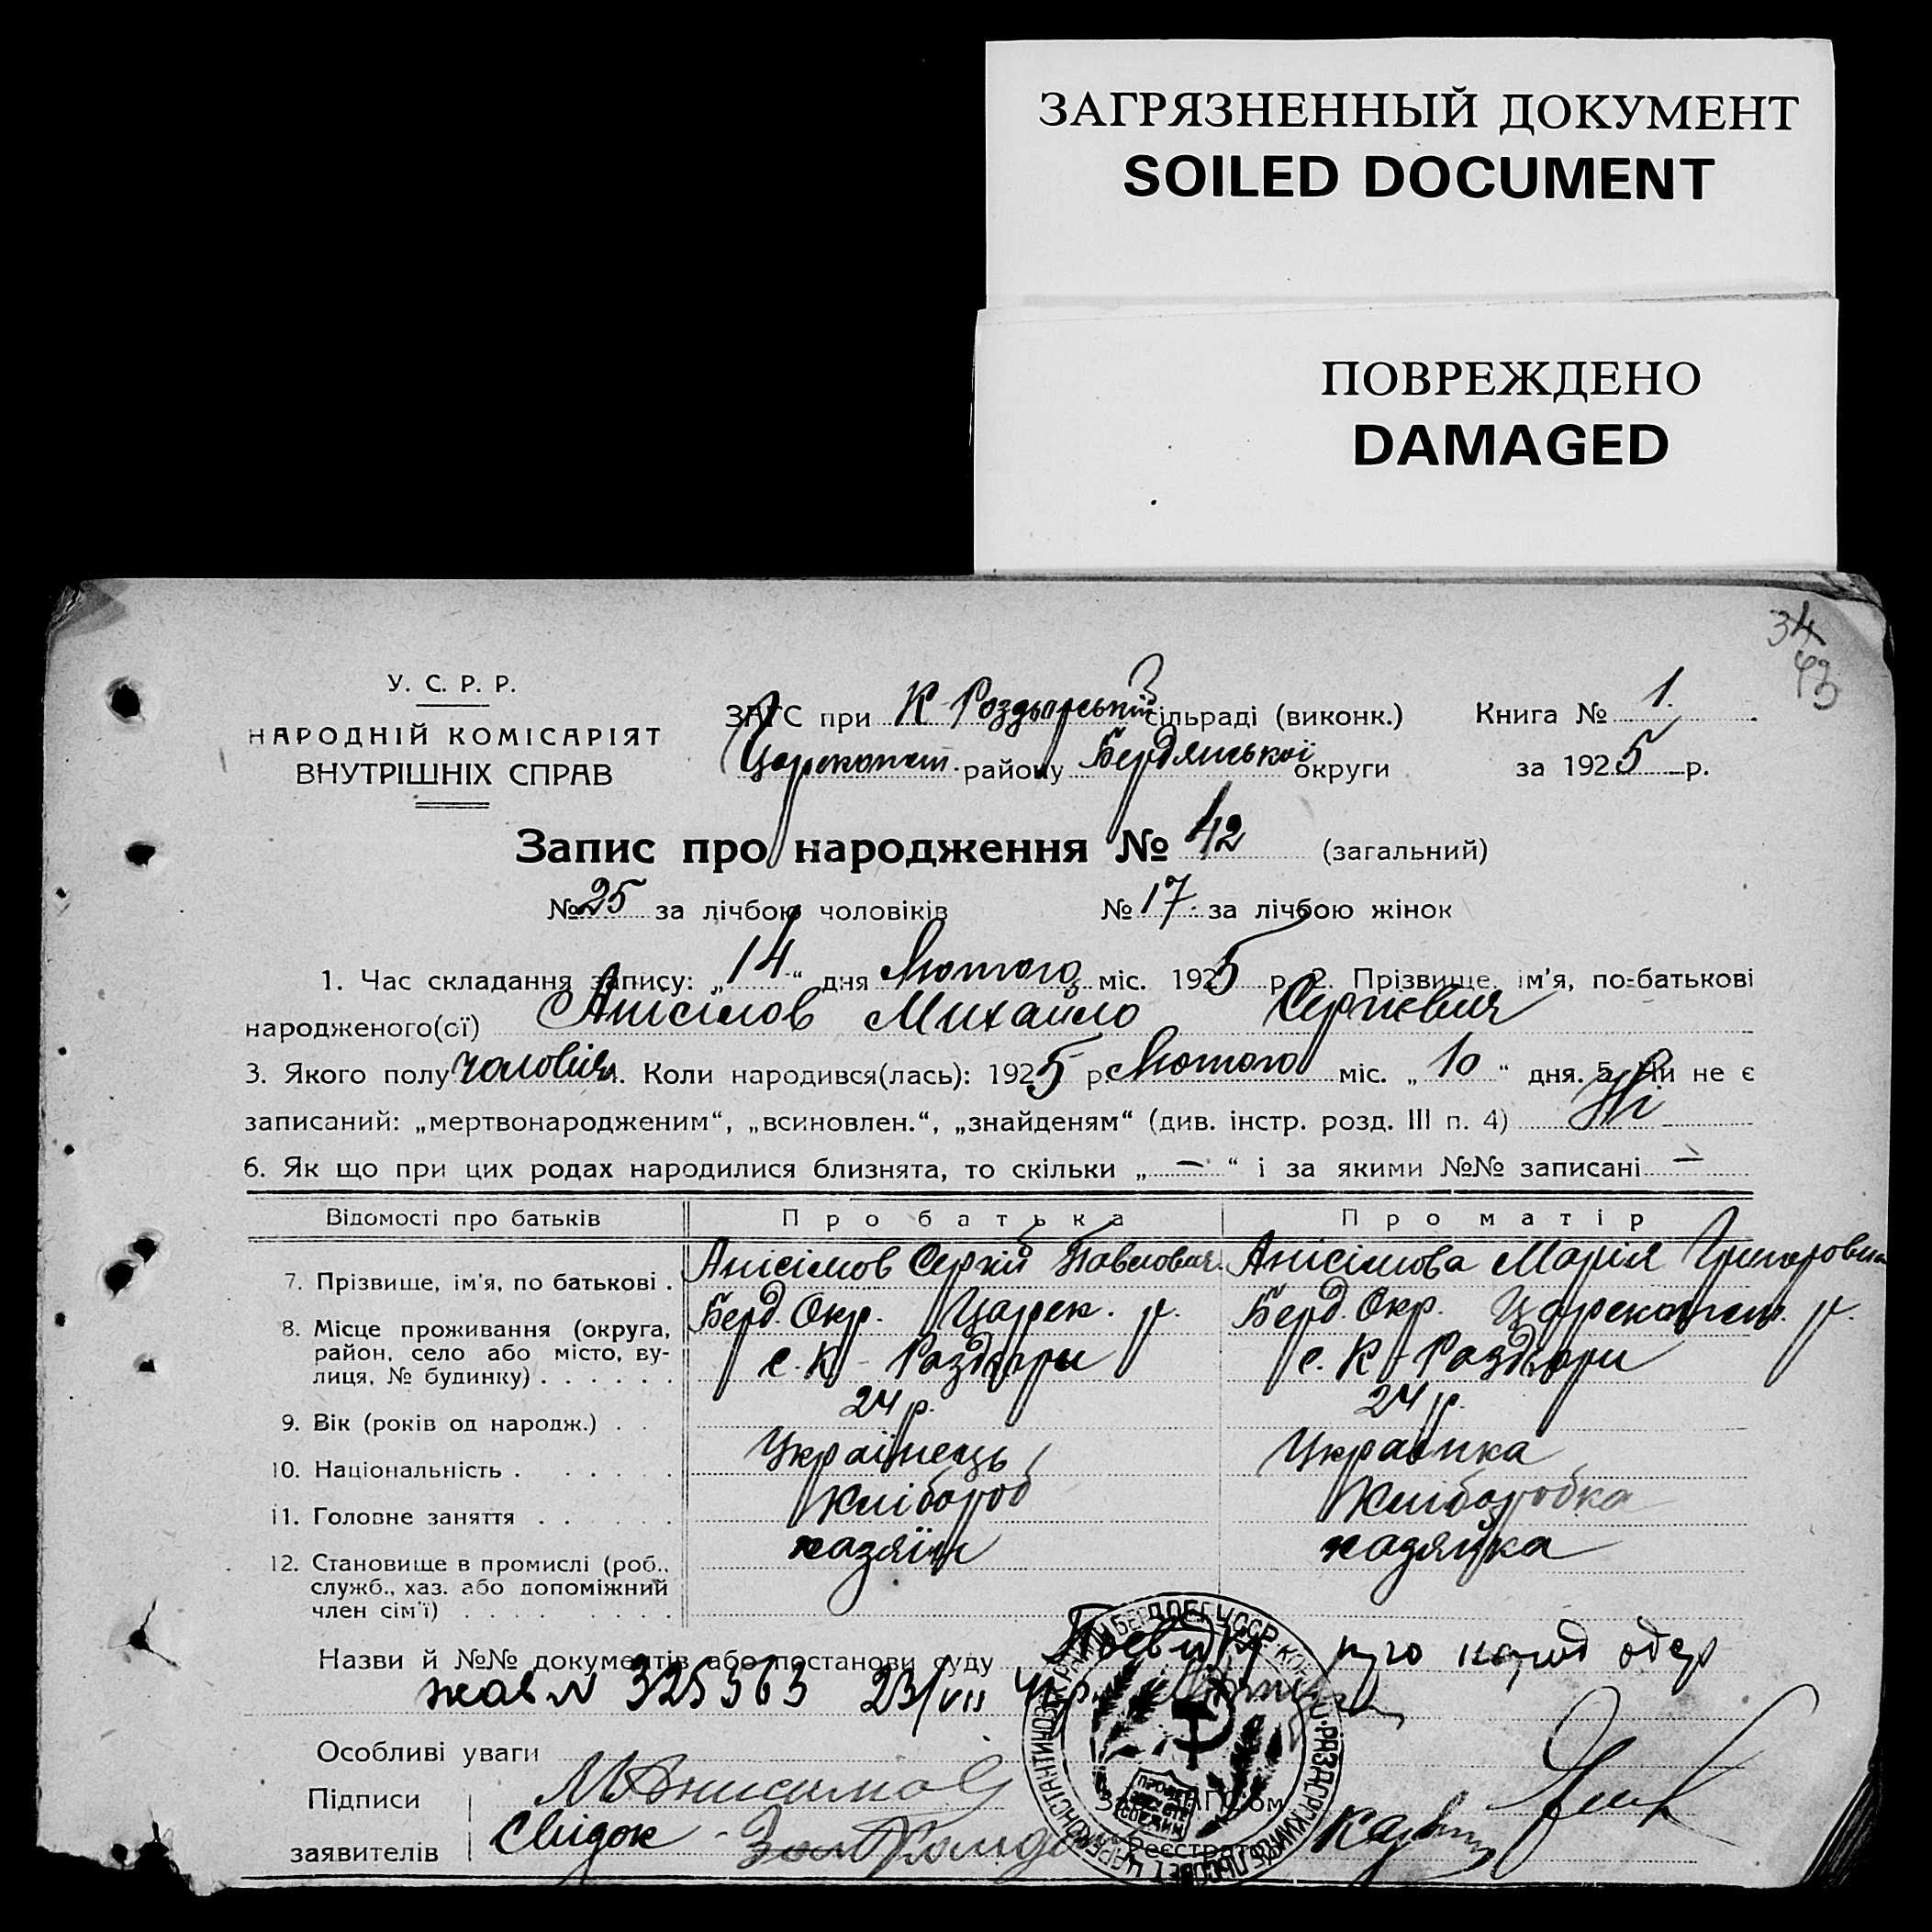 ЗАГРЯЗНЕННЫЙ ДОКУМЕНТ
SOILED DOCUMENT
ПОВРЕЖДЕНО
DAMAGED
34
43
У. С. Р. Р.
НАРОДНІЙ КОМІСАРІЯТ
ВНУТРІШНІХ СПРАВ
ЗАГС при К Роздорській сільраді (виконк.) Книга № 1.
Цареконст. району Бердянської округи за 1925 р.
Запис про народження № 42 (загальний)
№ 25 за лічбою чоловіків № 17 за лічбою жінок
1. Час складання запису: „14“ дня Лютого міс. 1925 р. 2. Прізвище, ім'я, по-батькові
народженого(ої) Анісімов Михайло Сергієвич
3. Якого полу чоловіч. 4. Коли народився(лась): 1925 р. Лютого міс. „10“ дня. 5. Чи не є
записаний: „мертвонародженим“, „всиновлен.“, „знайденям“ (див. інстр. розд. III п. 4) Ні
6. Як що при цих родах народилися близнята, то скільки „—“ і за якими №№ записані —
Відомості про батьків Про батька Про матір
7. Прізвище, ім'я, по батькові . Анісімов Сергій Павлович Анісімова Марія Григоровна
8. Місце проживання (округа, район, село або місто, вулиця, № будинку) . . . . . . Берд. Окр. Царек. р. Берд. Окр. Цареконст. р.
с. К-Роздоры с. К-Роздори
9. Вік (років од народж.) . . 24 р. 24 р.
10. Національність . . . . . . Українець Українка
11. Головне заняття . . . . . Хлібороб Хліборобка
12. Становище в промислі (роб., служб., хаз. або допоміжний член сім'ї) . . . . . . . . . хазяїн хазяйка
Назви й №№ документів або постанови суду про народ одер
жав № 325363 23/VII
Особливі уваги
Підписи МАнисимов
заявителів Свідок
Реєстратор